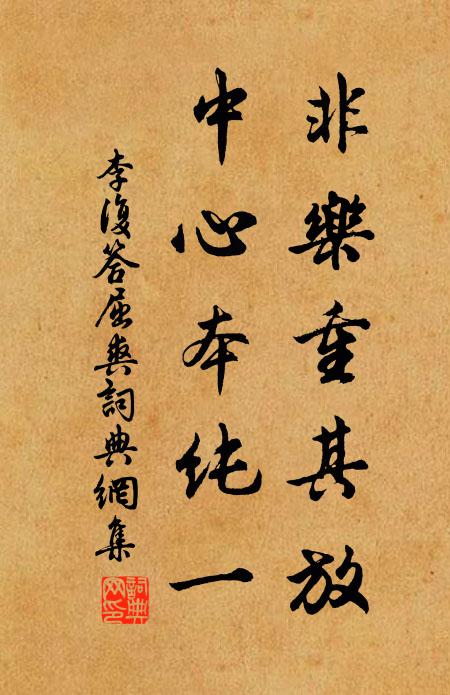 非樂重其放
中心本純一
李復答屈爽詞典網集
詞典網印